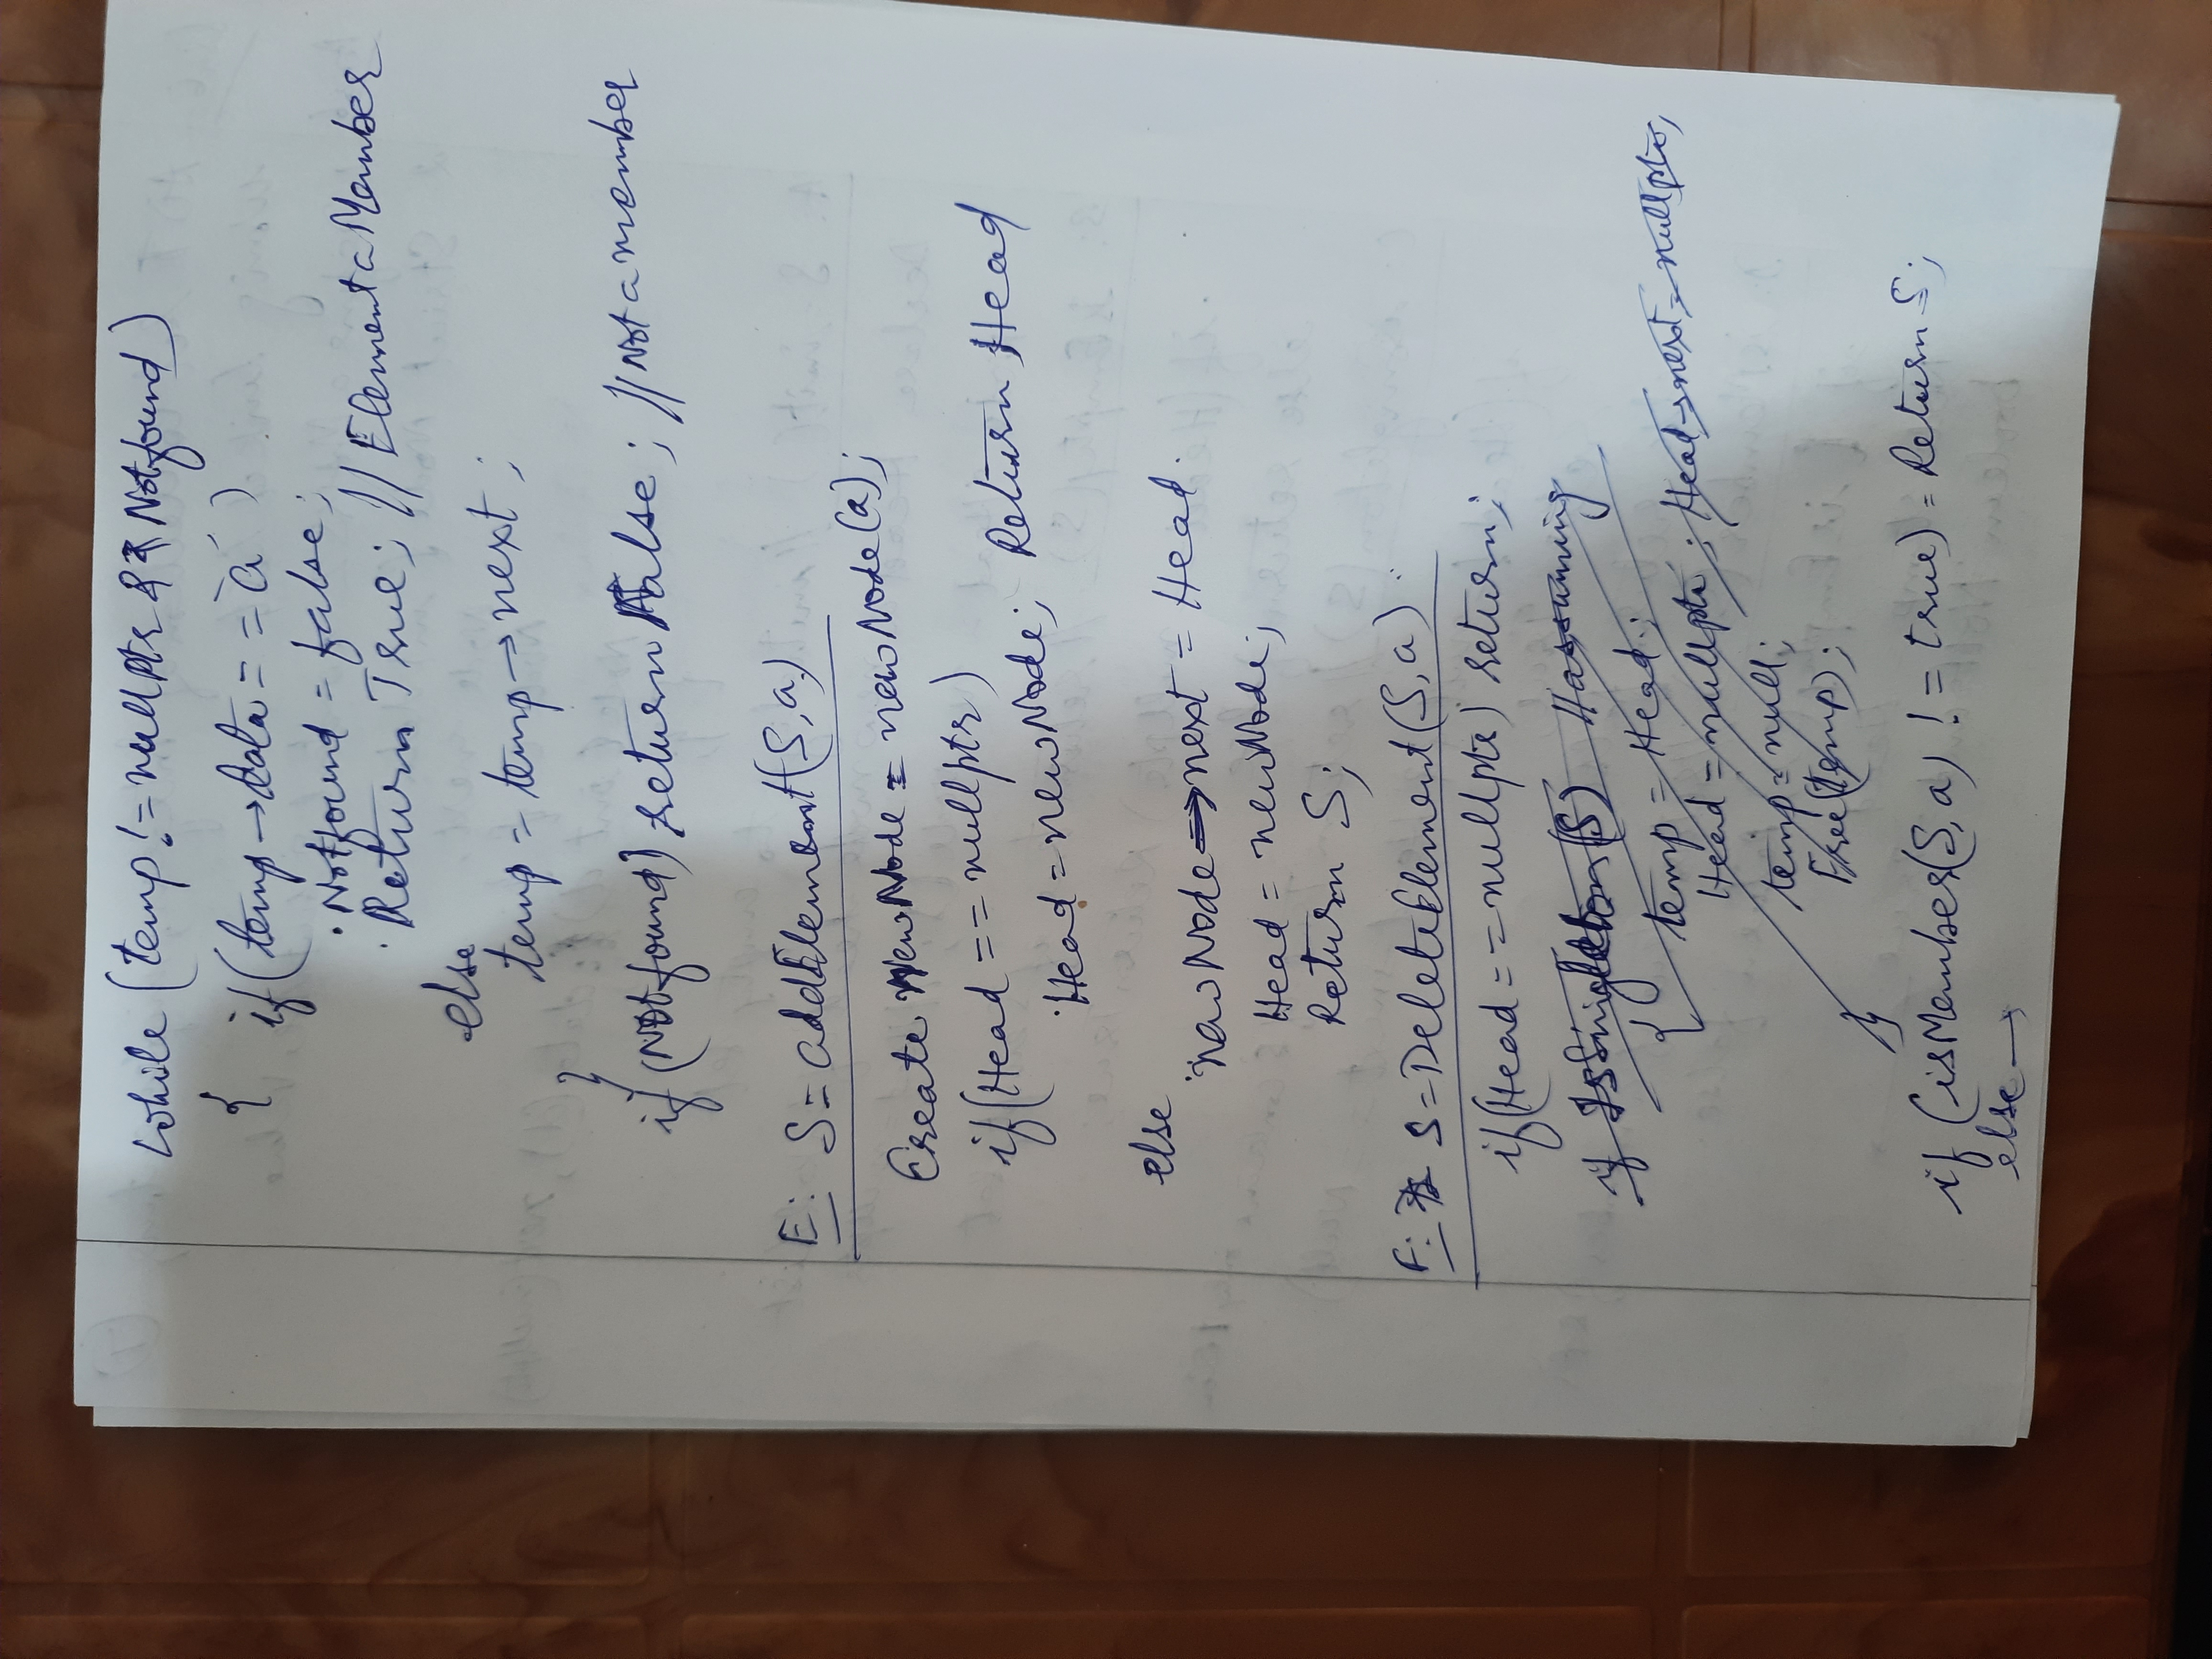 while (temp != nullptr && Notfound)
{ if (temp → data == 'a')
. Notfound = false;
. Return True; // Element a Member
else
temp = temp → next ;
}
if (Notfound) return False ; // Not a member
E: S = addElement(S, a)
Create. NewNode = newNode(a);
if (Head == nullptr)
. Head = newNode; Return Head
else
. NewNode → next = Head.
Head = newNode;
Return S;
F: S = DeleteElement(S, a).
if (Head == nullptr) return ;
if IsSingleton(S) Hassuming
{ temp = Head;
Head = nullptr ; Head → next = nullptr;
temp = null;
Free(temp);
}
if (isMember(S, a) ! = true) = Return S;
else →